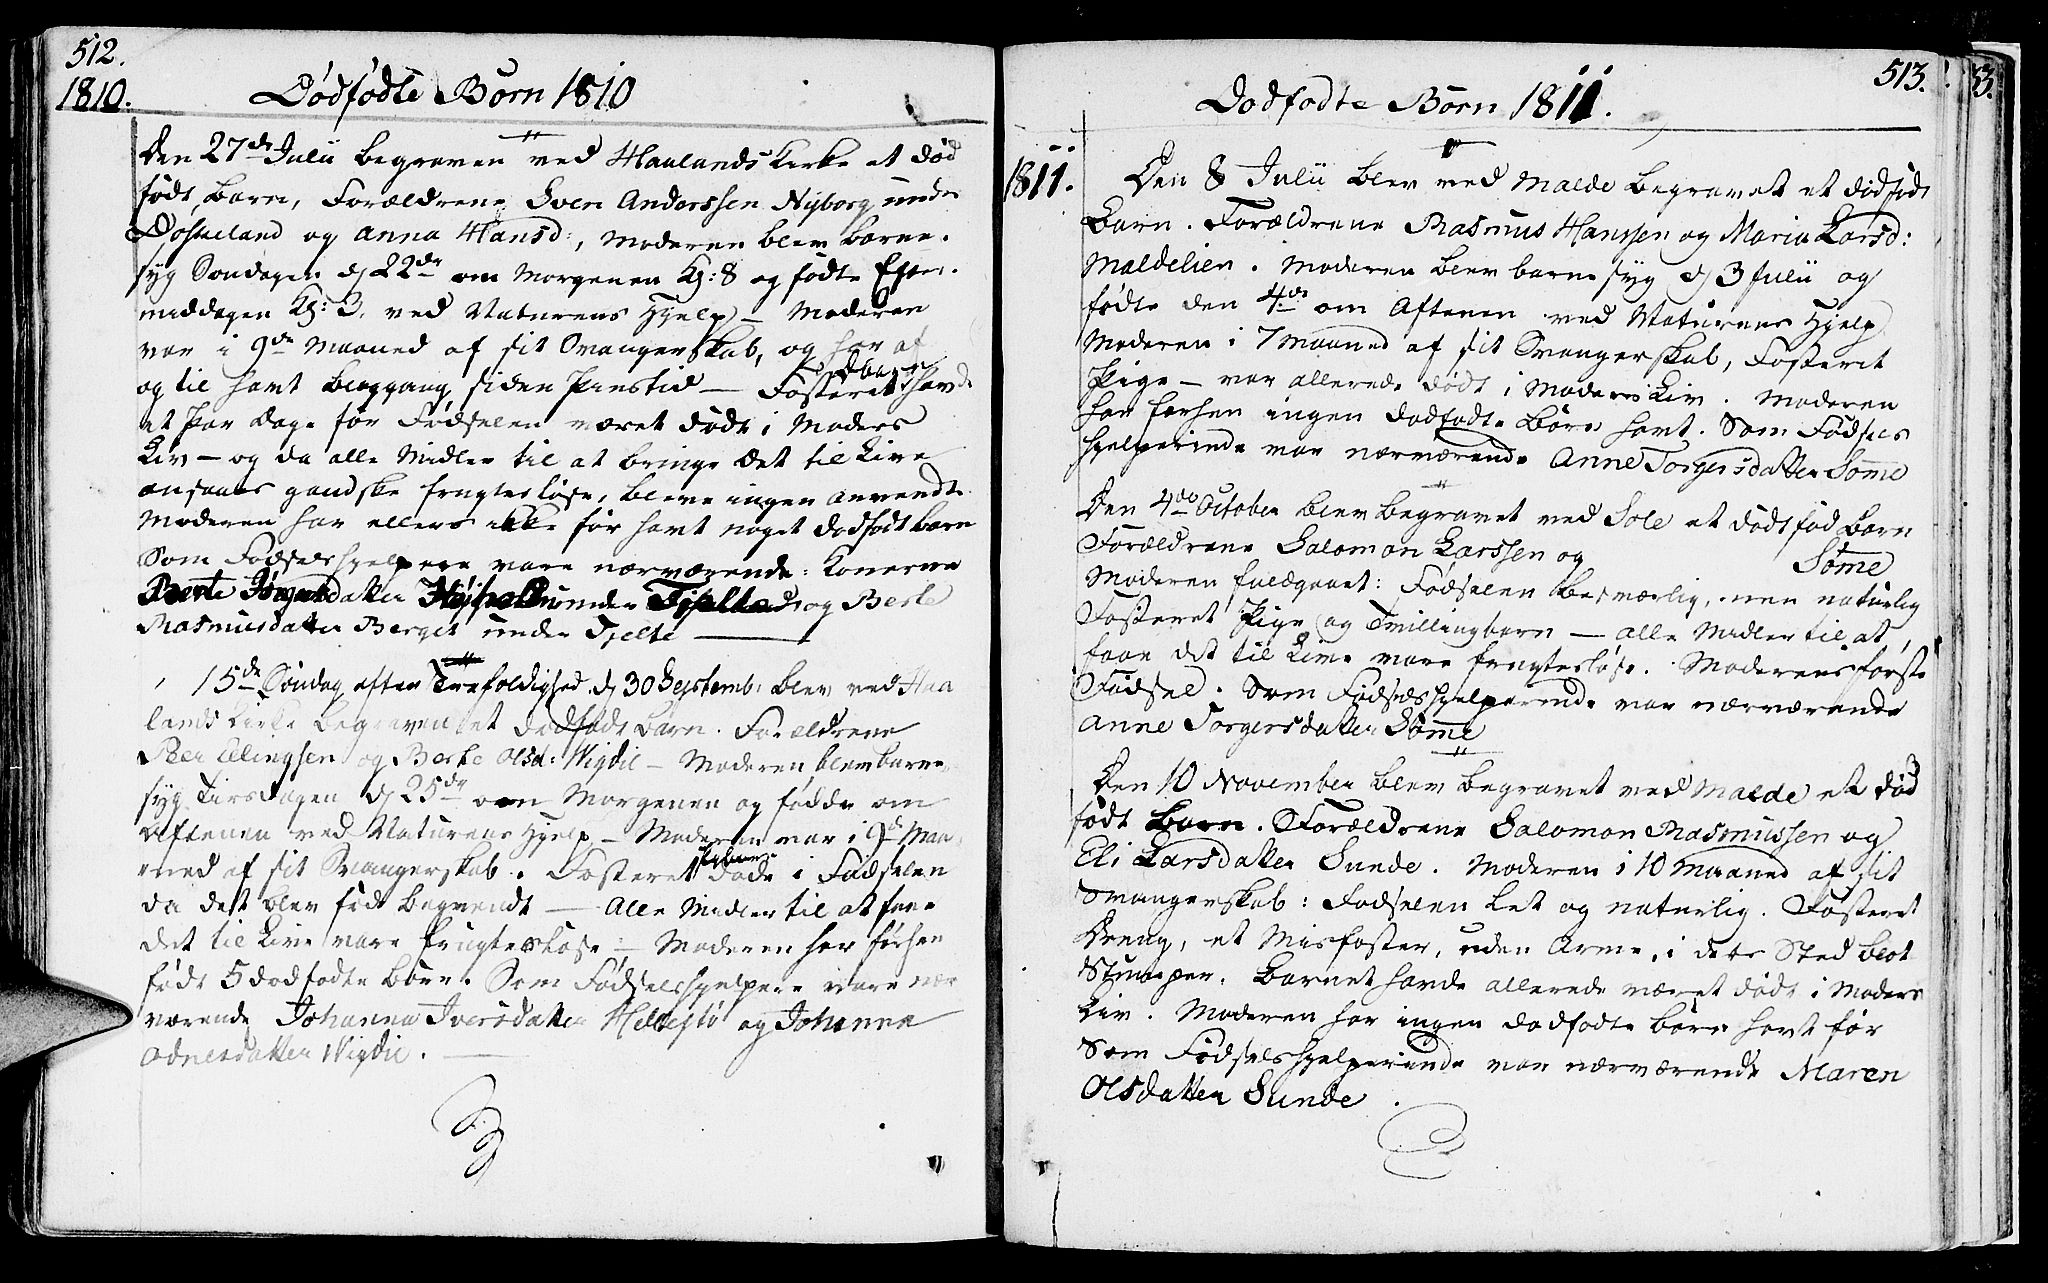 512.
1810.
Dødfødte Börn 1810
Den 27de Julii begraven ved Haalands Kirke et död
födt, barn, Forældrene Sven Anderssen Nyborg under
og Anna Hansd:, Moderen blev barne-
syg Söndagen d 22de om Morgenen Kl: 8 og födte Efter-
middagen Kl: 3. ved Naturens Hjelp – Moderen
var i 9de Maaned af sit Svangerskab, og har af
og til havt Blodgang siden Pinstid – Fosteret havde
et Par Dage för Fødselen været dödt i Moders
Liv – og da alle Midler til at bringe det til Live
ansaaes gandske frugteslöse, bleve ingen anvendte
Moderen har ellers ikke för havt noget dødfødt barn
Som Fødselshjelpere vare nærværende: Konerne
Berte datter under og Berte
Rasmusdatter Berget under Tjelte
15de Söndag efter Trefoldighed d 30 Septemb: blev ved Haa
lands Kirke begraven et dødfødt Barn. Forældrene
Peer Elingsen og Berte Olsd: Wigdil – Moderen blev barne-
syg Tirsdagen d 25de om Morgenen og fødde om
Aftenen ved Naturens Hjelp – Moderen var i 9de Maa-
ned af sit Svangerskab. Fosteret döde i Fødselen
da det blev föd bagvendt – Alle Midler til at faae
det til Live vare frugteslöse; – Moderen har förhen
födt 5 dødfødte börn. Som Fødselshjelpere vare nær
værende Johanna Iversdatter Hellestö og Johanna
Odnesdatter Wigdil.
513.
Dødfødte Börn 1811.
1811.
Den 8 Julii blev ved Malde begravet et dödfödt
Barn. Forældrene Rasmus Hanssen og Maria Larsd:
Maldelien. Moderen blev barnesyg d 3 Julii og
födte den 4de om Aftenen ved Naturens Hjelp
Moderen i 7 Maaned af sit Svangerskab, Fosteret
Pige – var allerede dödt i Moders Liv. Moderen
har forhen ingen dødfødte Börn havt. Som Fødsels
hjelperinde var nærværende Anne Torgersdatter Sömme
Den 4de October blev begravet ved Sole et dödtföd Barn
Forældrene Salomon Larssen og Sömme
Moderen fuldgaaet: Fødselen besværlig, men naturlig
Fosteret Pige og Tvillingbarn – alle Midler til at
faae det til Live vare frugteslöse. Moderens förste
Fødsel. Som Fødselshjelperinde var nærværende
Anne Torgersdatter Sömme
Den 10 November blev begravet ved Malde et död
födt Barn. Forældrene Salomon Rasmussen og
Eli Larsdatter Sunde. Moderen i 10 Maaned af sit
Svangerskab: Fødselen let og naturlig. Fosteret
Dreng, et Misfoster, uden Arme, i dets Sted blot
Stumper. Barnet havde allerede været dödt i Moders
Liv. Moderen har ingen dødfødte börn havt för
Som Fødselshjelperinde var nærværende Maren
Olsdatter Sunde.